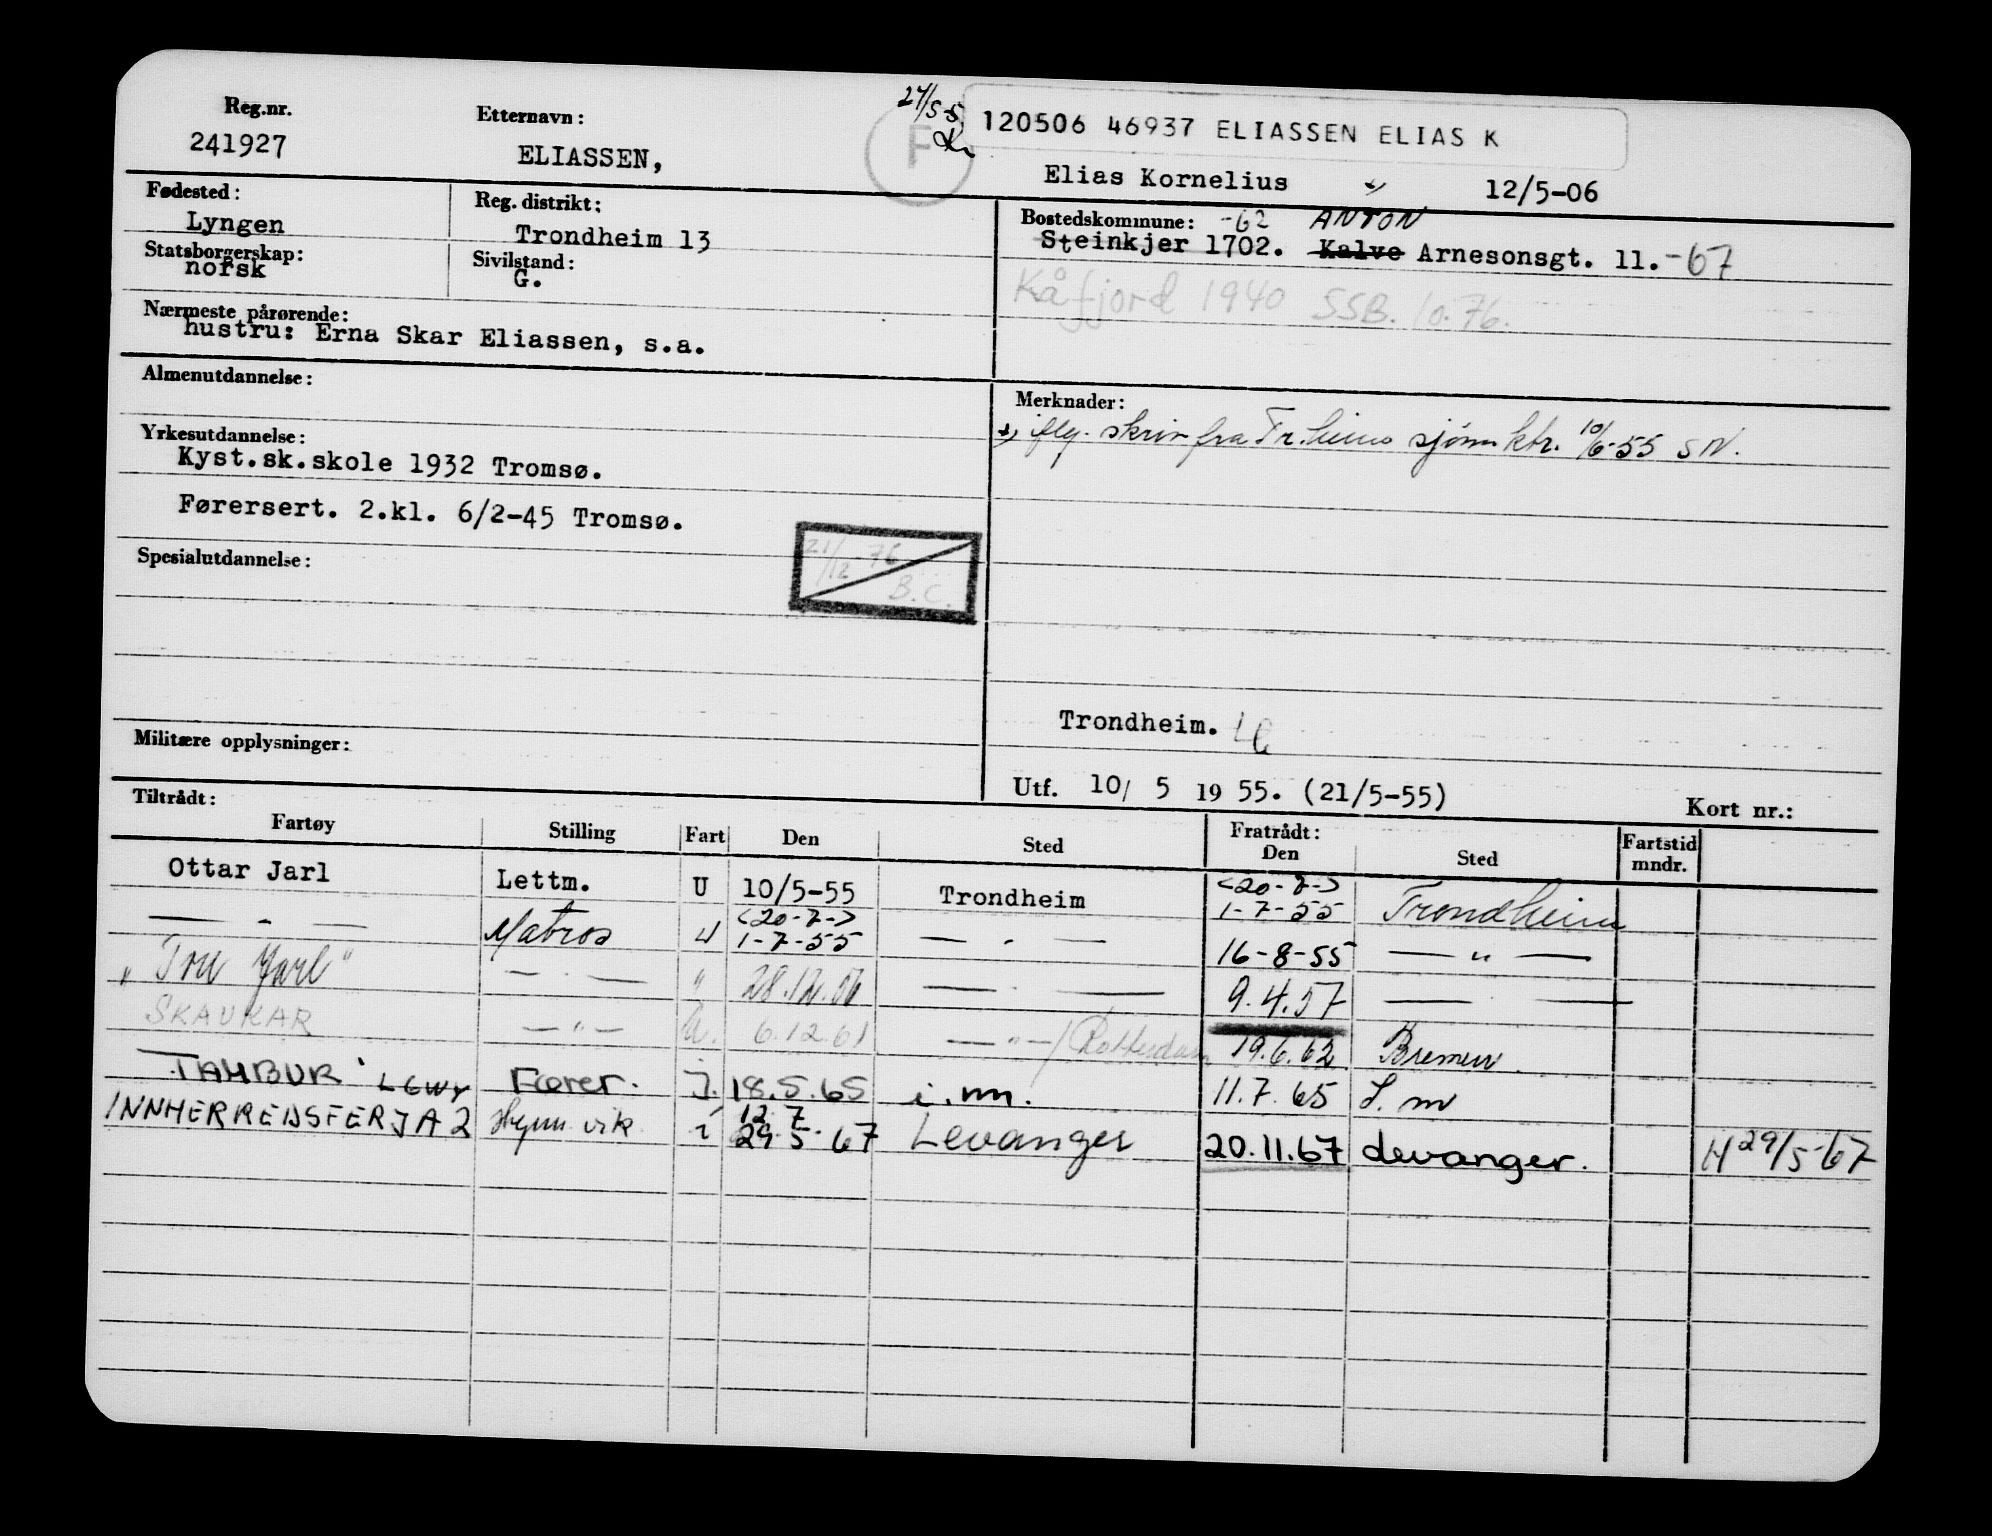 Reg.nr. Etternavn: 27/5-55 120506 46937 ELIASSEN ELIAS K
241927 ELIASSEN, F Elias Kornelius 12/5-06
Fødested: Reg. distrikt: Bostedskommune: -62 ANTON
Lyngen Trondheim 13 Steinkjer 1702. Kalve Arnesonsgt. 11. -67
Statsborgerskap: Sivilstand:
norsk G. Kåfjord 1940 SSB. 10.76.
Nærmeste pårørende:
hustru: Erna Skar Eliassen, s.a.
Almenutdannelse: Merknader:
iflg. skriv fra Tr.heims sjömktr. 10/6-55 SN.
Yrkesutdannelse:
Kyst.sk.skole 1932 Tromsø.
Førersert. 2.kl. 6/2-45 Tromsø.
Spesialutdannelse: 21/12 76 B.C.
Trondheim.
Militære opplysninger:
Utf. 10/ 5 19 55. (21/5-55) Kort nr.:
Tiltrådt: Fratrådt:
Fartøy Stilling Fart Den Sted Den Sted Fartstid mndr.
Ottar Jarl Lettm. U 10/5-55 Trondheim <20-7-> 1-7-55 Trondheim
— - — Matros U <20-7-> 1-7-55 — - — 16-8-55 — " —
" Jarl" — - — " 28.12.56 — - — 9.4.57 — —
SKAUKAR — " — U. 6.12.61 — " — / Rotterdam 19.6.62 Bremen.
TAMBUR LEWY Fører. J. 18.5.65 i.nn. 11.7.65
INNHERREDSFERJA 2 i 12 7 29 5. 67 Levanger 20.11.67 Levanger. H 29/5-67